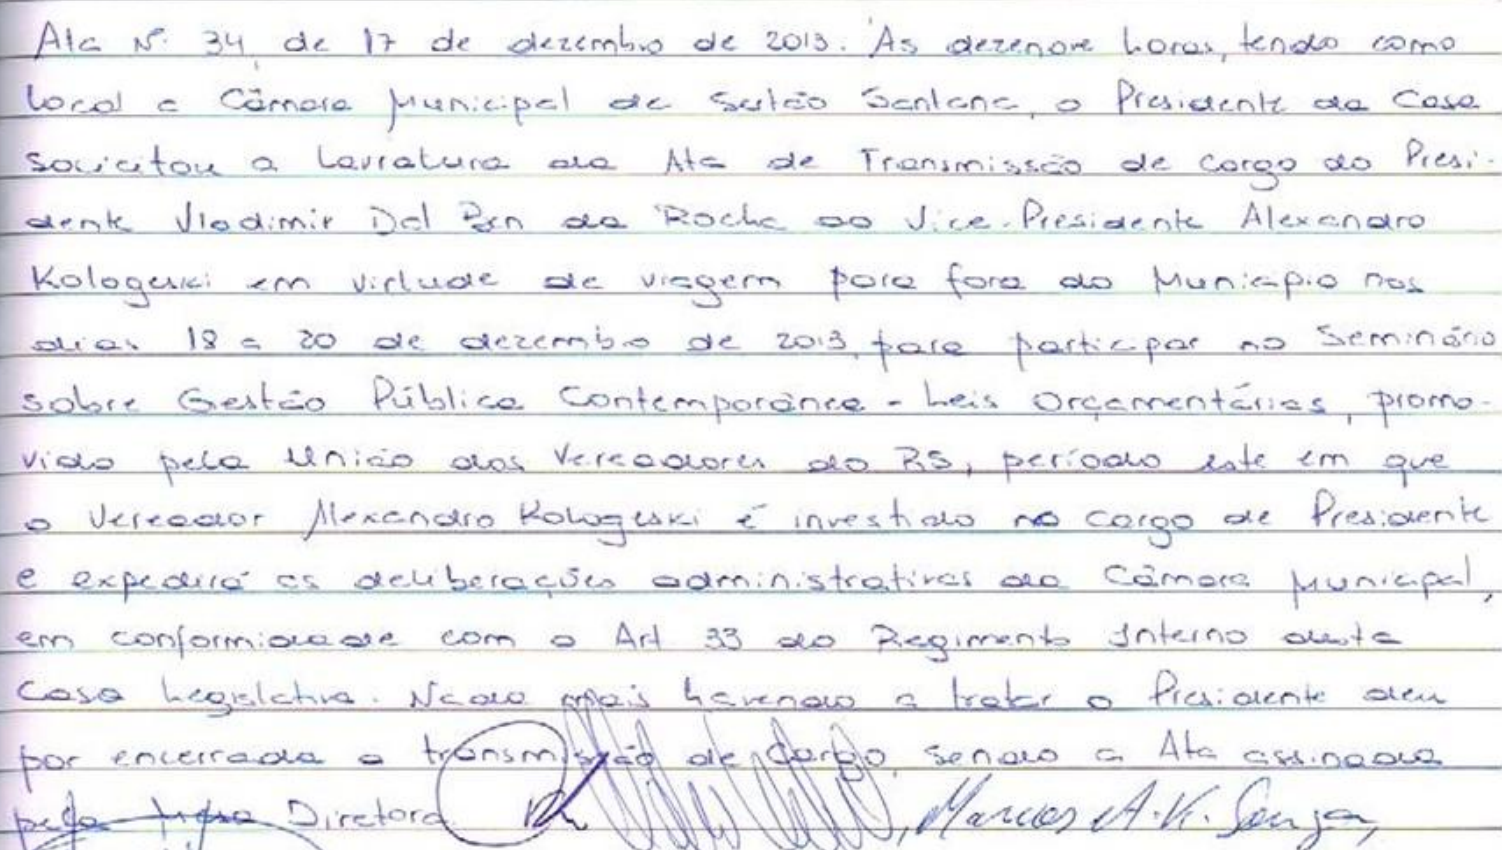 Ata Nº 34, de 17 de dezembro de 2013. Às dezenove horas, tendo como
local a Câmara Municipal de Sertão Santana, o Presidente da Casa
solicitou a lavratura da Ata de Transmissão de cargo do Presi-
dente Vladimir Dal Ben da Rocha ao Vice-Presidente Alexandro
Kologeski em virtude de viagem para fora do Município nos
dias 18 a 20 de dezembro de 2013, para participar no Seminário
sobre Gestão Pública Contemporânea - Leis Orçamentárias, promo-
vido pela União dos Vereadores do RS, período este em que
o Vereador Alexandro Kologeski é investido no cargo de Presidente
e expedirá as deliberações administrativas da Câmara Municipal,
em conformidade com o Art 33 do Regimento Interno desta
Casa Legislativa. Nada mais havendo a tratar o Presidente deu
por encerrada a transmissão de cargo, sendo a Ata assinada
pela Mesa Diretora. , Marcos A. K. Souza,